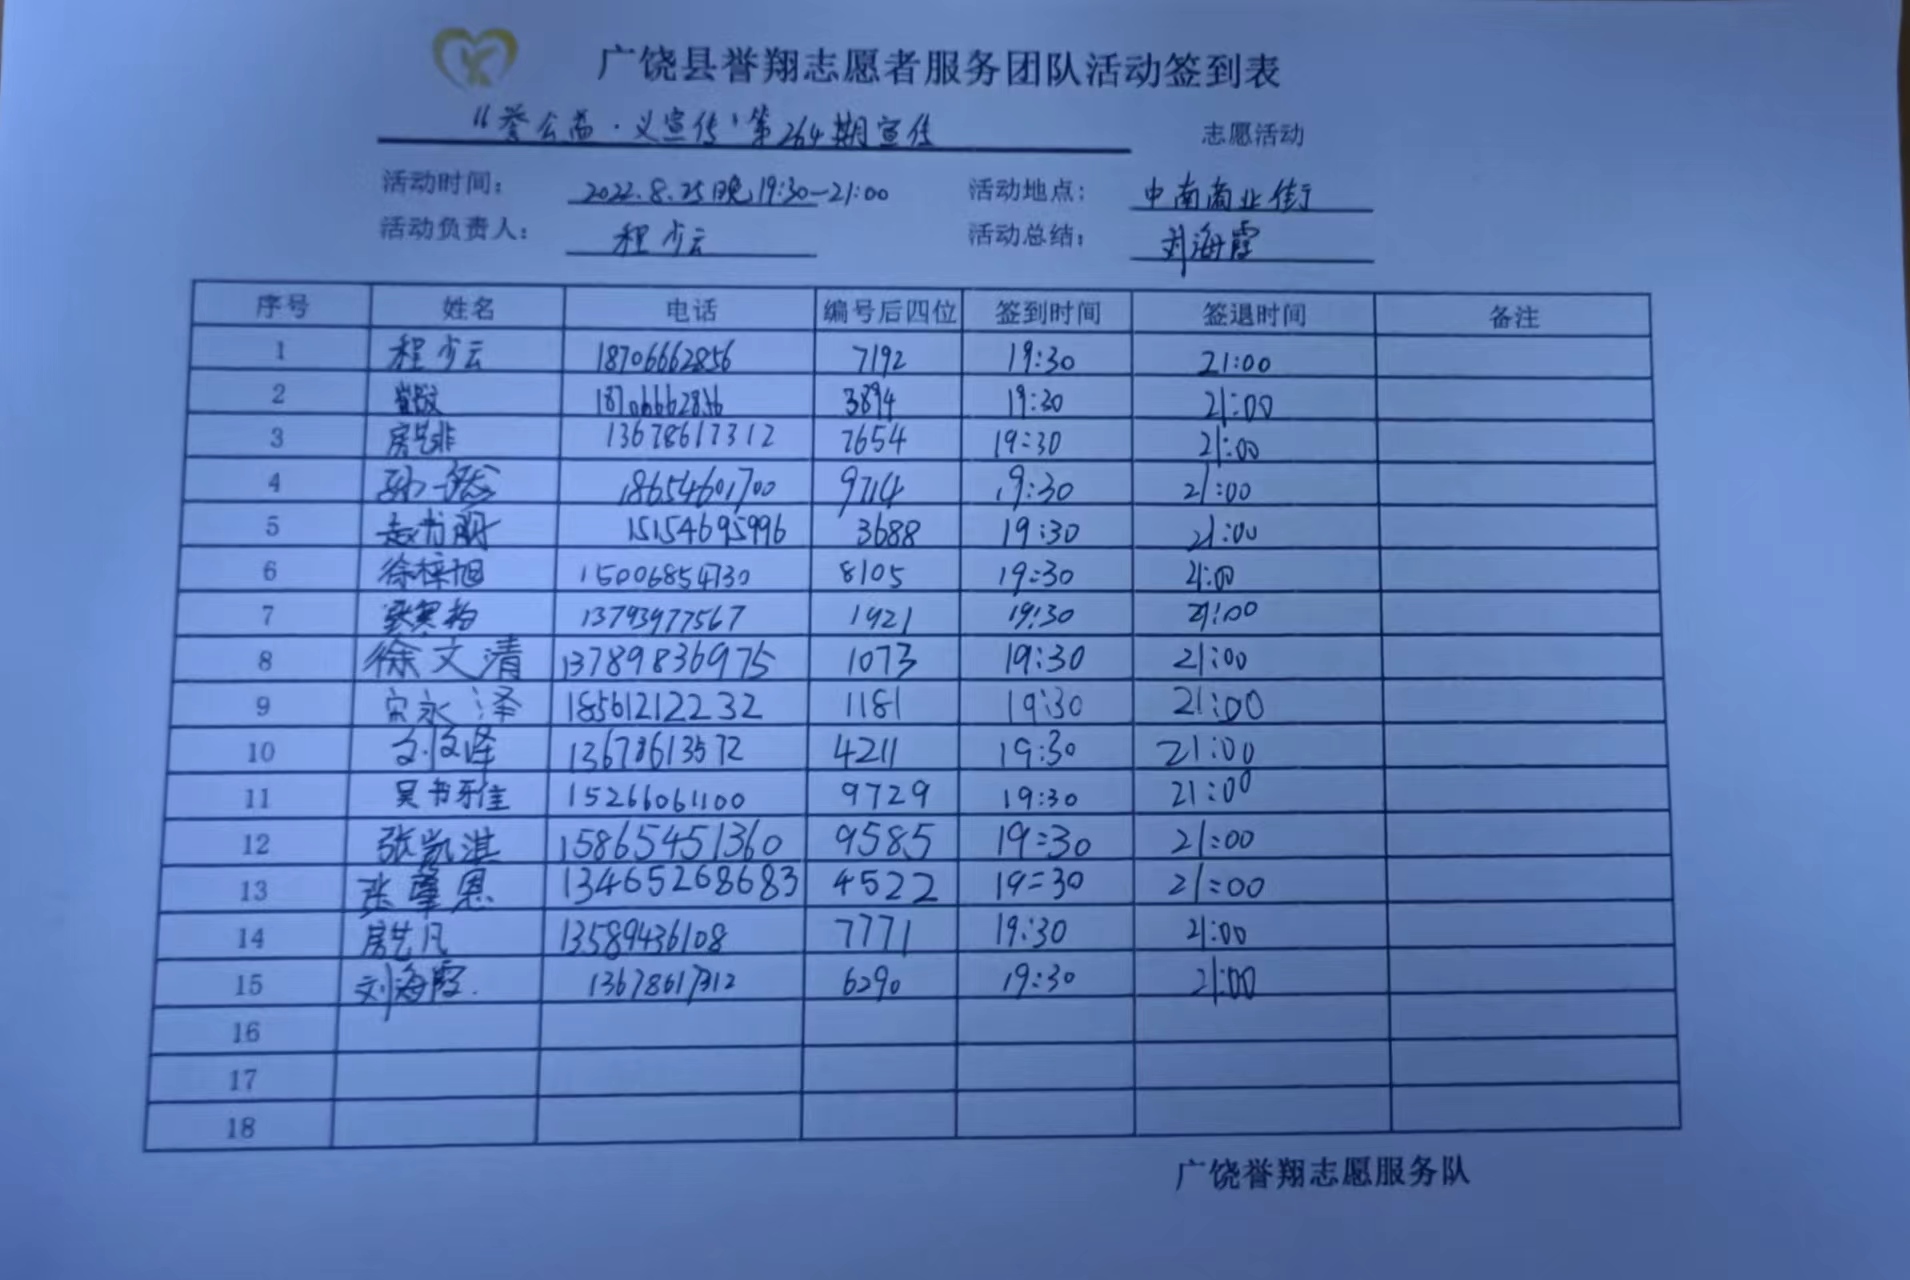 广饶县誉翔志愿者服务团队活动签到表
“誉公益·义宣传”第264期宣传 志愿活动
活动时间： 2022.8.25晚19:30-21:00 活动地点： 中南商业街
活动负责人： 程少云 活动总结： 刘海霞
序号 姓名 电话 编号后四位 签到时间 签退时间 备注
1 程少云 18706662856 7192 19:30 21:00
2 18706662856 3894 19:30 21:00
3 房艺非 13678617312 7654 19:30 21:00
4 孙一诺 18654601700 9714 19:30 21:00
5 15154695996 3688 19:30 21:00
6 徐梓旭 15006854730 8105 19:30 21:00
7 13793977567 1921 19:30 21:00
8 徐文清 13789836975 1073 19:30 21:00
9 宋永泽 18561212232 1181 19:30 21:00
10 13678613572 4211 19:30 21:00
11 吴书雅 15266061100 9729 19:30 21:00
12 张凯淇 15865451360 9585 19:30 21:00
13 张肇恩 13465268683 4522 19:30 21:00
14 房艺凡 13589436108 7771 19:30 21:00
15 刘海霞. 13678617312 6290 19:30 21:00
16
17
18
广饶誉翔志愿服务队